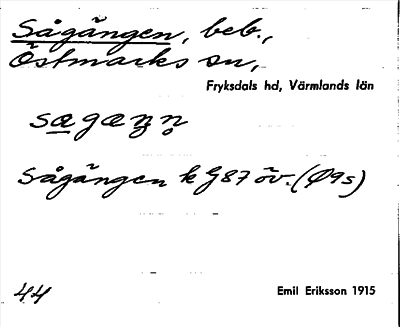 Sågången, beb.,
Östmarks sn,
Fryksdals hd, Värmlands län
sægæŋn̥
Sågången k G87 öv. (Ø9s)
44
Emil Eriksson 1915